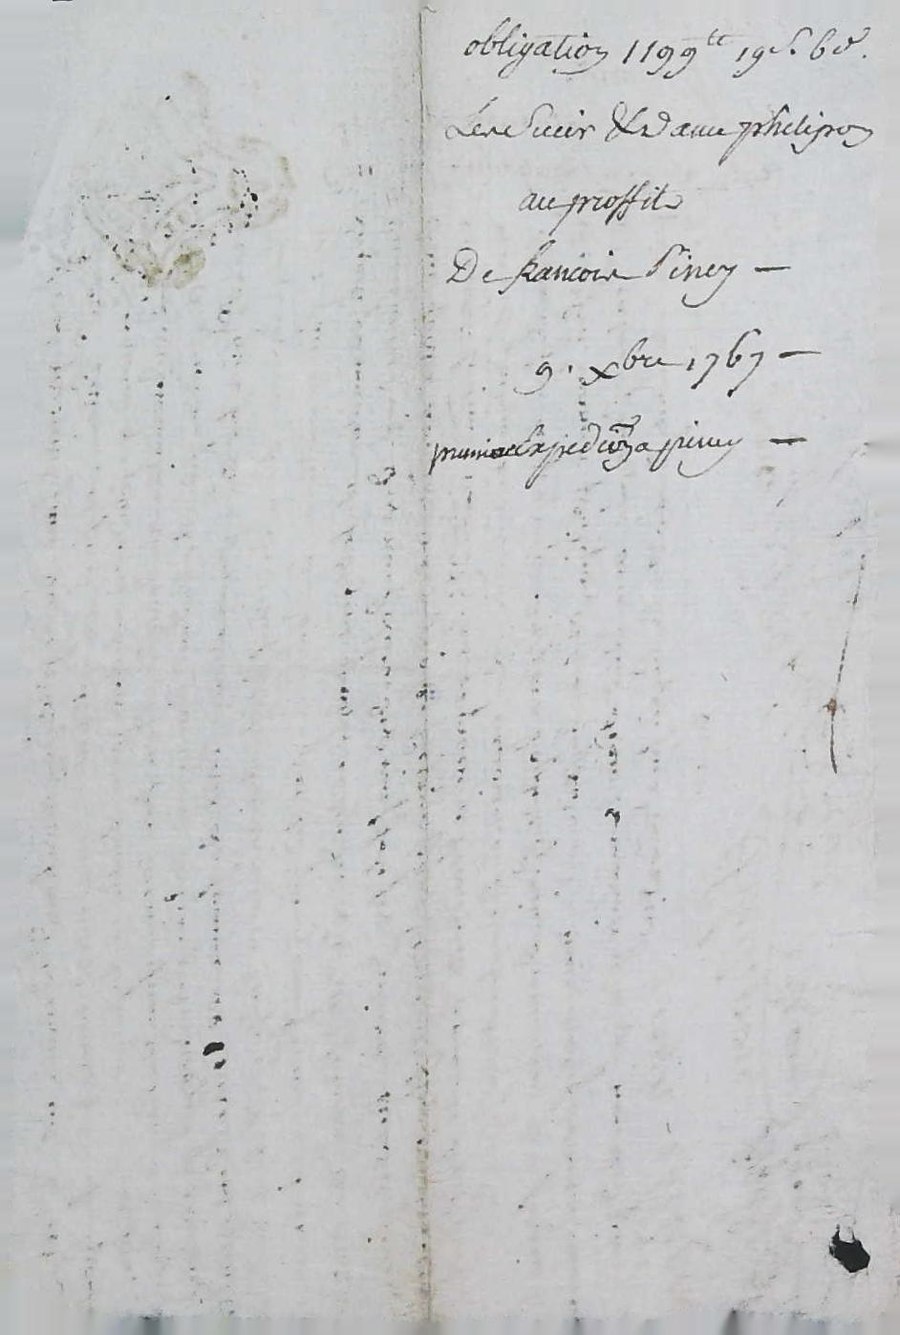 obligation 1199tt 19s. 6d.
Les Sieur & dame phelipon
au proffit
De francois Piney —
9. xbre 1767 —
premiere Expedion a piney —